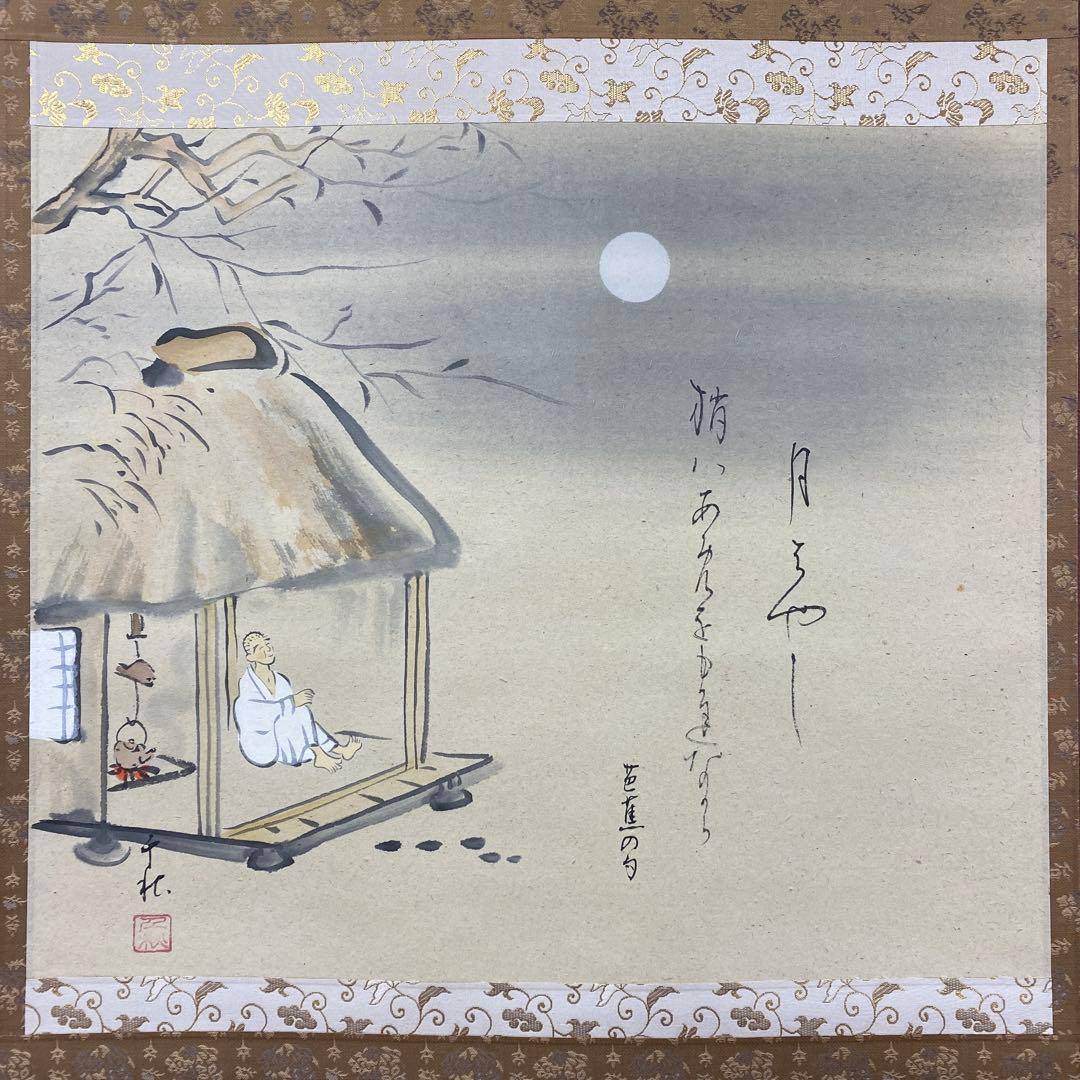 月はやし
梢ハあめをもちなから
芭蕉の句